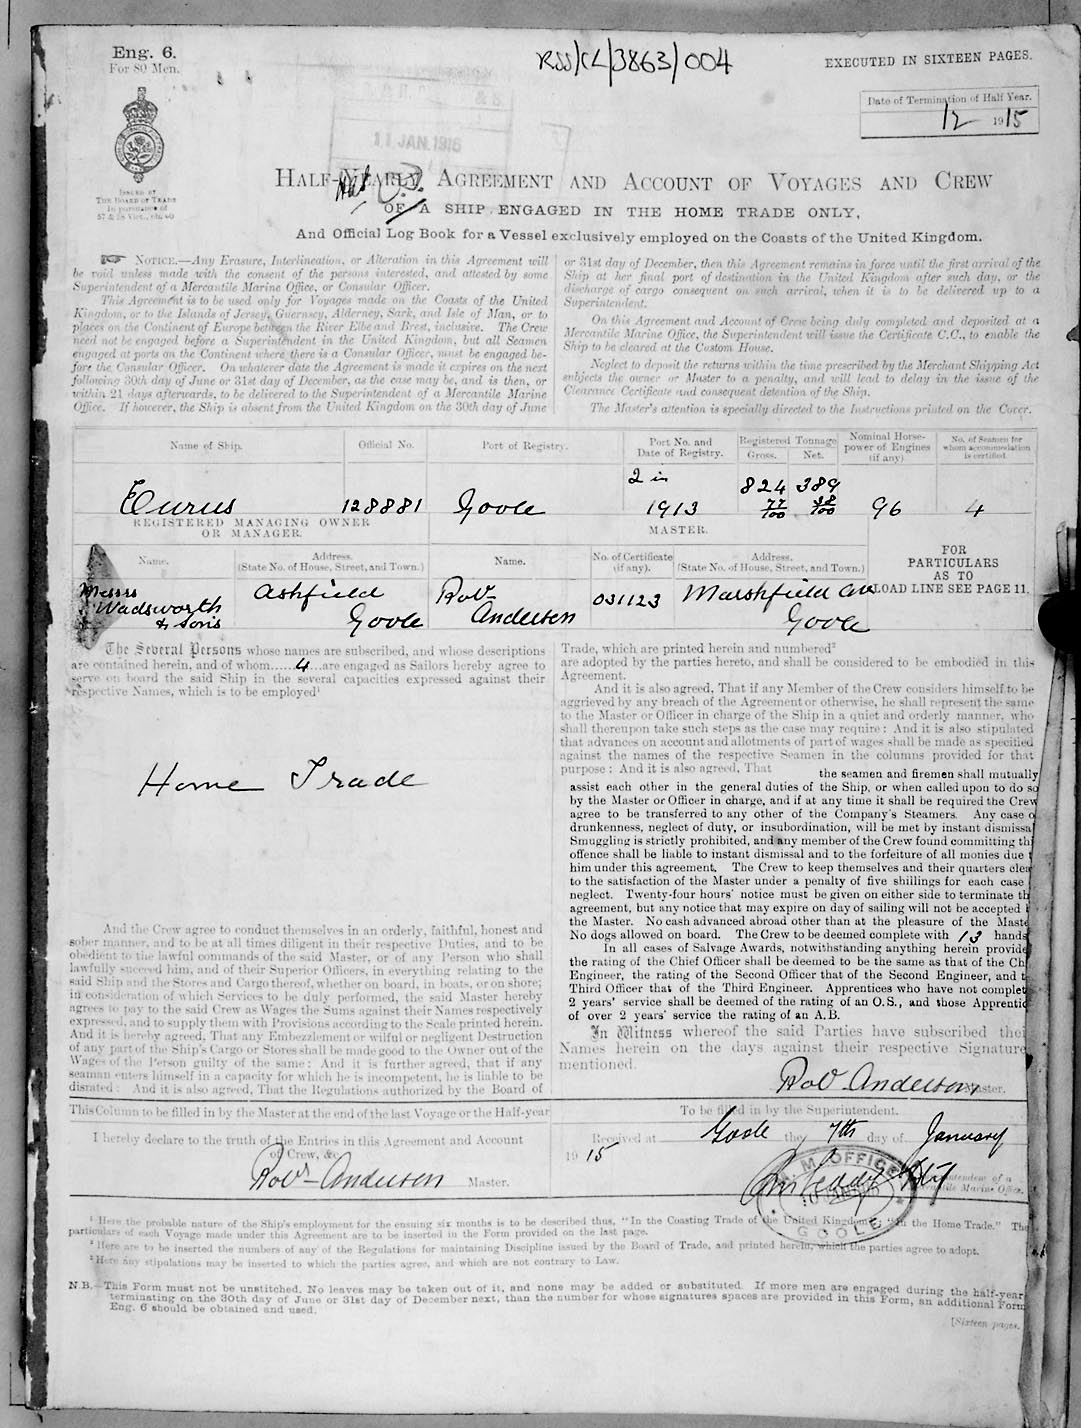 Eng. 6.
For 80 Men.
RSS/CL/3863/004
EXECUTED IN SIXTEEN PAGES.
Date of Termination of Half Year.
12 1915
11 JAN. 1916
ISSUED BY
THE BOARD OF TRADE
In pursuance of
57 & 58 Vict., ch. 60
HALF-YEARLY AGREEMENT AND ACCOUNT OF VOYAGES AND CREW
OF A SHIP ENGAGED IN THE HOME TRADE ONLY,
And Official Log Book for a Vessel exclusively employed on the Coasts of the United Kingdom.
NOTICE.—Any Erasure, Interlineation, or Alteration in this Agreement will
be void unless made with the consent of the persons interested, and attested by some
Superintendent of a Mercantile Marine Office, or Consular Officer.
This Agreement is to be used only for Voyages made on the Coasts of the United
Kingdom, or to the Islands of Jersey, Guernsey, Alderney, Sark, and Isle of Man, or to
places on the Continent of Europe between the River Elbe and Brest, inclusive. The Crew
need not be engaged before a Superintendent in the United Kingdom, but all Seamen
engaged at ports on the Continent where there is a Consular Officer, must be engaged be-
fore the Consular Officer. On whatever date the Agreement is made it expires on the next
following 30th day of June or 31st day of December, as the case may be, and is then, or
within 21 days afterwards, to be delivered to the Superintendent of a Mercantile Marine
Office. If however, the Ship is absent from the United Kingdom on the 30th day of June
or 31st day of December, then this Agreement remains in force until the first arrival of the
Ship at her final port of destination in the United Kingdom after such day, or the
discharge of cargo consequent on such arrival, when it is to be delivered up to a
Superintendent.
On this Agreement and Account of Crew being duly completed and deposited at a
Mercantile Marine Office, the Superintendent will issue the Certificate C.C., to enable the
Ship to be cleared at the Custom House.
Neglect to deposit the returns within the time prescribed by the Merchant Shipping Act
subjects the owner or Master to a penalty, and will lead to delay in the issue of the
Clearance Certificate and consequent detention of the Ship.
The Master's attention is specially directed to the Instructions printed on the Cover.
Name of Ship. Official No. Port of Registry. Port No. and Date of Registry. Registered Tonnage Gross. Net. Nominal Horse-power of Engines (if any) No. of Seamen for whom accommodation is certified.
Eurus 128881 Goole 2 in 1913 824 77/100 389 38/100 96 4
REGISTERED MANAGING OWNER
OR MANAGER.
MASTER.
Name. Address. (State No. of House, Street, and Town.) Name. No. of Certificate (if any). Address. (State No. of House, Street, and Town.)
FOR
PARTICULARS
AS TO
LOAD LINE SEE PAGE 11.
Messrs Wadsworth & Sons Ashfield Goole Robt Anderson 031123 Marshfield Ave Goole
The Several Persons whose names are subscribed, and whose descriptions
are contained herein, and of whom 4 are engaged as Sailors hereby agree to
serve on board the said Ship in the several capacities expressed against their
respective Names, which is to be employed¹
Home Trade
And the Crew agree to conduct themselves in an orderly, faithful, honest and
sober manner, and to be at all times diligent in their respective Duties, and to be
obedient to the lawful commands of the said Master, or of any Person who shall
lawfully succeed him, and of their Superior Officers, in everything relating to the
said Ship and the Stores and Cargo thereof, whether on board, in boats, or on shore;
in consideration of which Services to be duly performed, the said Master hereby
agrees to pay to the said Crew as Wages the Sums against their Names respectively
expressed, and to supply them with Provisions according to the Scale printed herein.
And it is hereby agreed, That any Embezzlement or wilful or negligent Destruction
of any part of the Ship's Cargo or Stores shall be made good to the Owner out of the
Wages of the Person guilty of the same: And it is further agreed, that if any
seaman enters himself in a capacity for which he is incompetent, he is liable to be
disrated: And it is also agreed, That the Regulations authorized by the Board of
Trade, which are printed herein and numbered²
are adopted by the parties hereto, and shall be considered to be embodied in this
Agreement.
And it is also agreed, That if any Member of the Crew considers himself to be
aggrieved by any breach of the Agreement or otherwise, he shall represent the same
to the Master or Officer in charge of the Ship in a quiet and orderly manner, who
shall thereupon take such steps as the case may require: And it is also stipulated
that advances on account and allotments of part of wages shall be made as specified
against the names of the respective Seamen in the columns provided for that
purpose: And it is also agreed, That the seamen and firemen shall mutually
assist each other in the general duties of the Ship, or when called upon to do so
by the Master or Officer in charge, and if at any time it shall be required the Crew
agree to be transferred to any other of the Company's Steamers. Any case o
drunkenness, neglect of duty, or insubordination, will be met by instant dismissa
Smuggling is strictly prohibited, and any member of the Crew found committing thi
offence shall be liable to instant dismissal and to the forfeiture of all monies due t
him under this agreement. The Crew to keep themselves and their quarters clea
to the satisfaction of the Master under a penalty of five shillings for each case
neglect. Twenty-four hours' notice must be given on either side to terminate th
agreement, but any notice that may expire on day of sailing will not be accepted b
the Master. No cash advanced abroad other than at the pleasure of the Maste
No dogs allowed on board. The Crew to be deemed complete with 13 hands
In all cases of Salvage Awards, notwithstanding anything herein provide
the rating of the Chief Officer shall be deemed to be the same as that of the Chi
Engineer, the rating of the Second Officer that of the Second Engineer, and t
Third Officer that of the Third Engineer. Apprentices who have not complet
2 years' service shall be deemed of the rating of an O.S., and those Apprentic
of over 2 years' service the rating of an A.B.
In Witness whereof the said Parties have subscribed thei
Names herein on the days against their respective Signature
mentioned.
Robt Anderson Master.
This Column to be filled in by the Master at the end of the last Voyage or the Half-year
I hereby declare to the truth of the Entries in this Agreement and Account
of Crew, &c.
Robt Anderson Master.
To be filled in by the Superintendent.
Received at Goole the 7th day of January
1915
M. M. OFFICE
GOOLE
¹ Here the probable nature of the Ship's employment for the ensuing six months is to be described thus, "In the Coasting Trade of the United Kingdom," "In the Home Trade." The
particulars of each Voyage made under this Agreement are to be inserted in the Form provided on the last page.
² Here are to be inserted the numbers of any of the Regulations for maintaining Discipline issued by the Board of Trade, and printed herein, which the parties agree to adopt.
³ Here any stipulations may be inserted to which the parties agree, and which are not contrary to Law.
N.B.—This Form must not be unstitched. No leaves may be taken out of it, and none may be added or substituted. If more men are engaged during the half-year
terminating on the 30th day of June or 31st day of December next, than the number for whose signatures spaces are provided in this Form, an additional Form
Eng. 6 should be obtained and used.
[Sixteen pages.